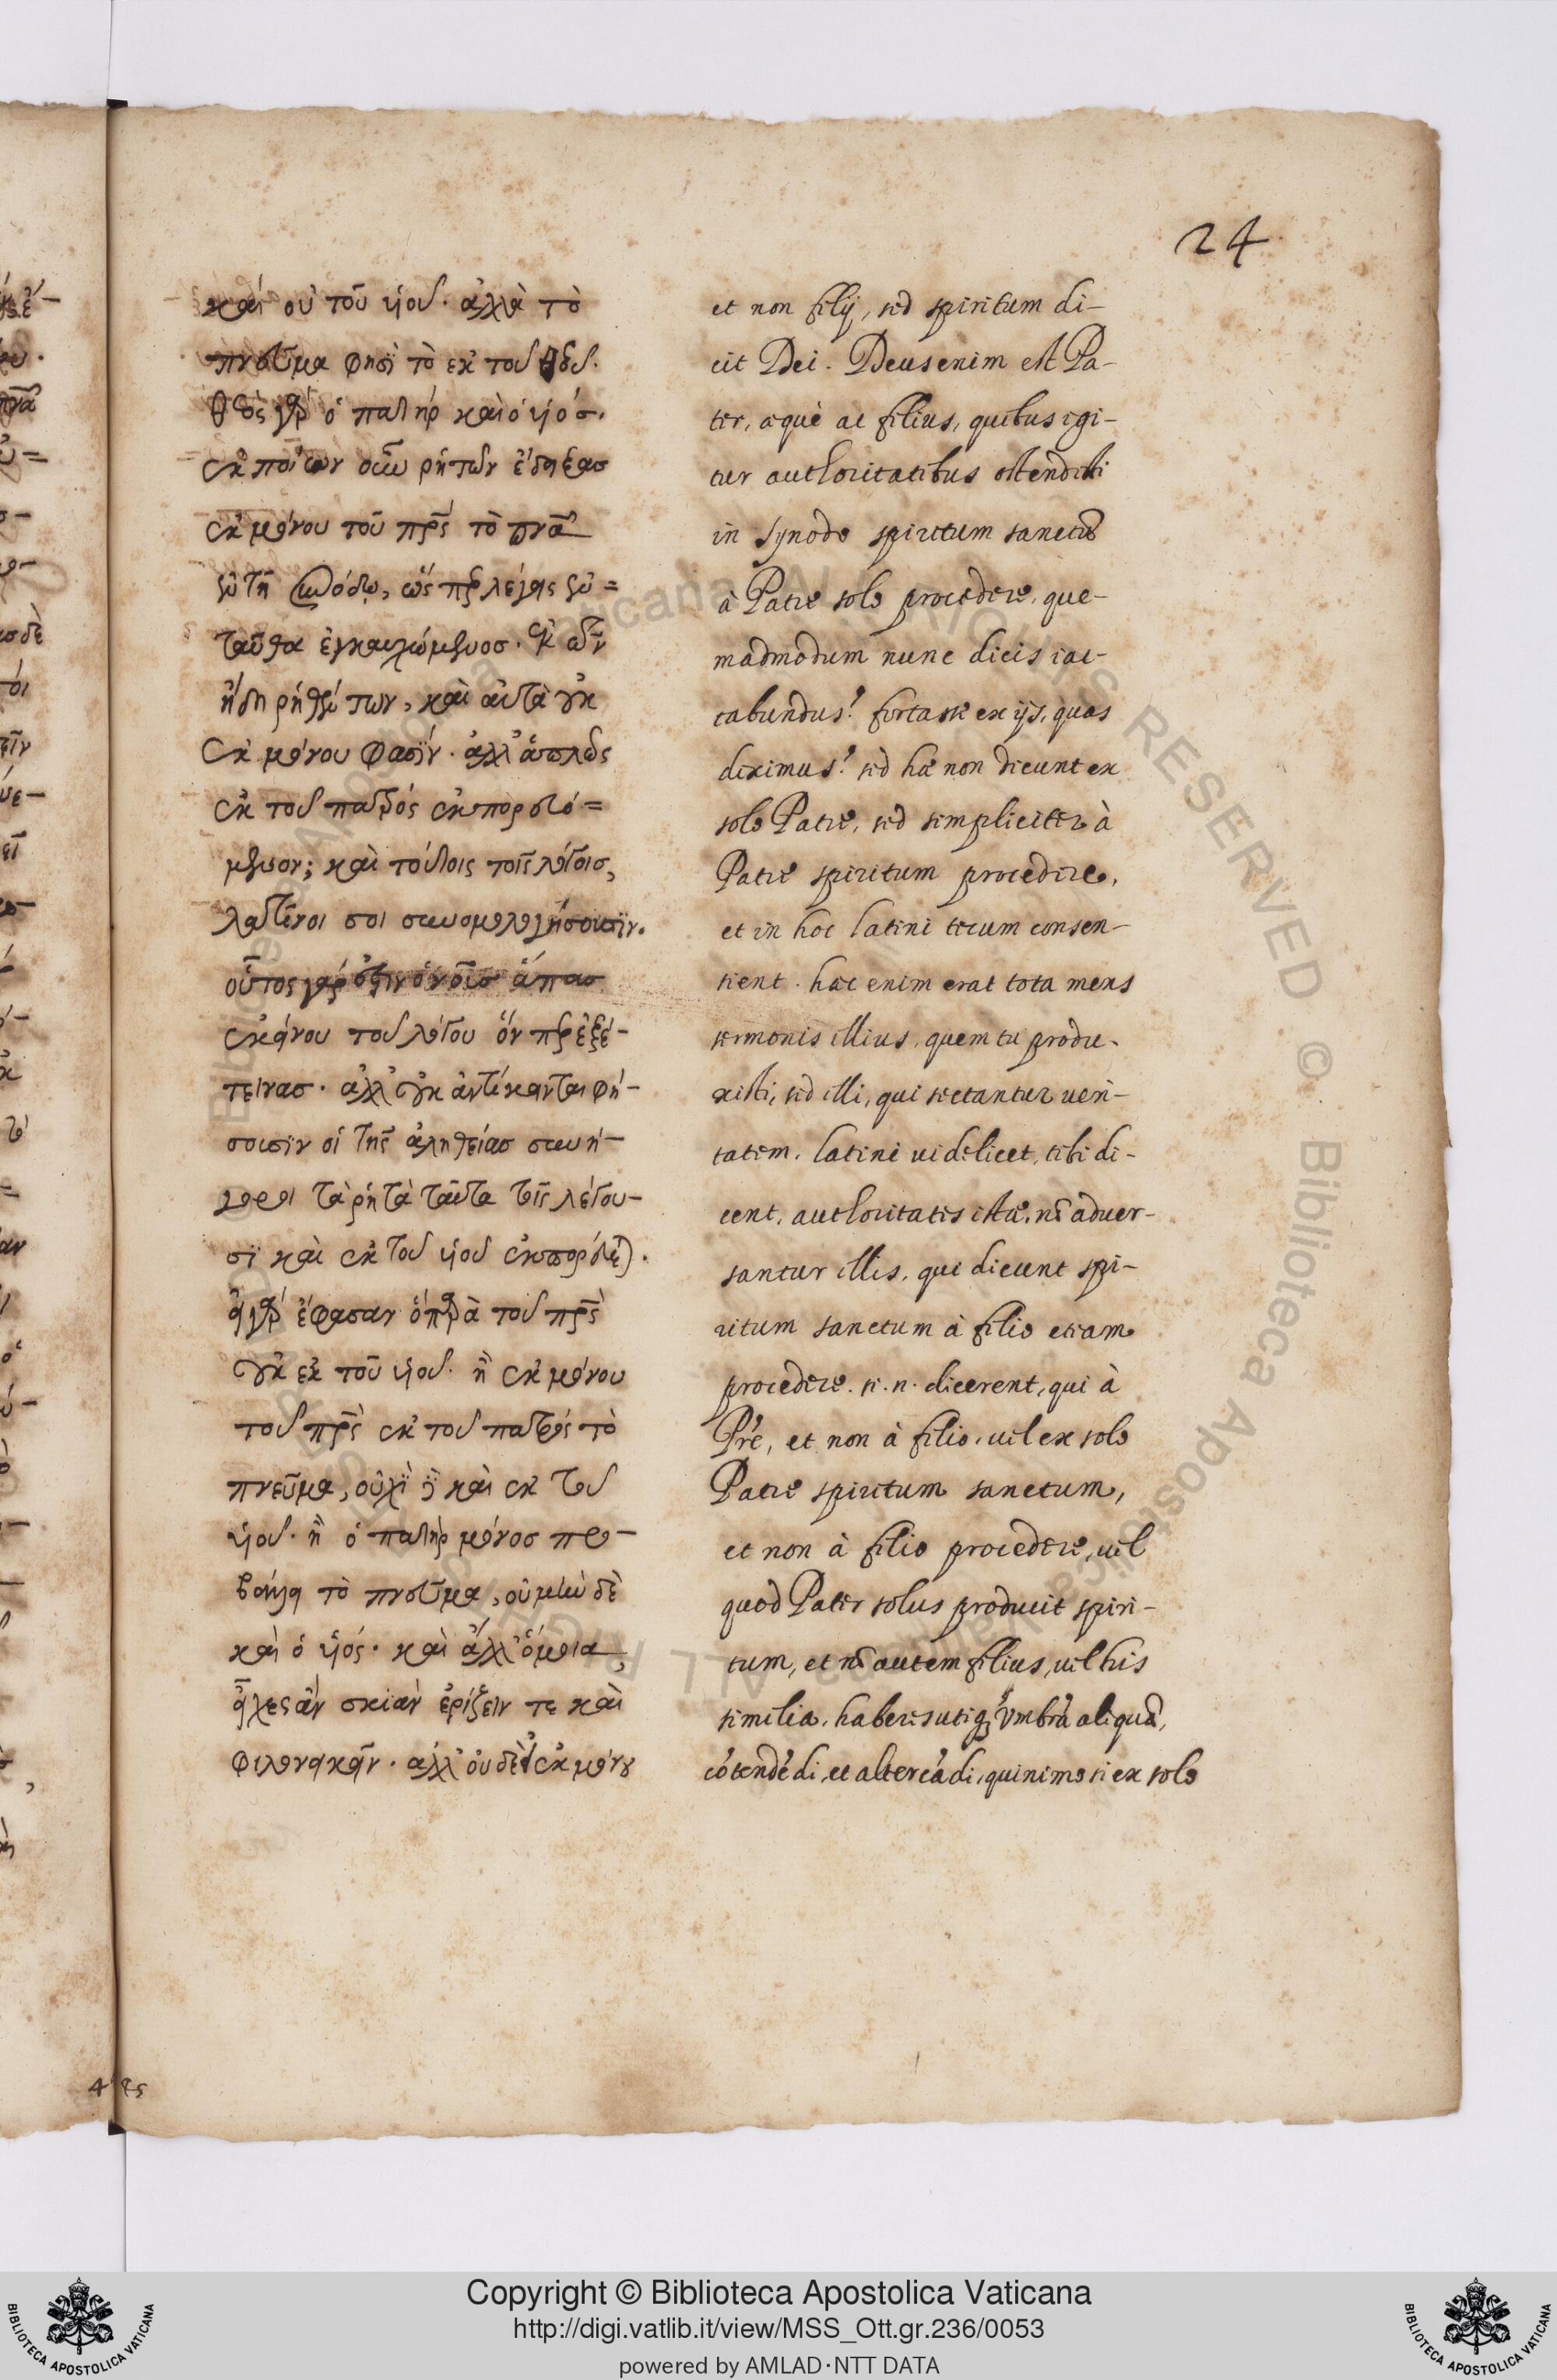 24
καὶ οὐ τοῦ υἱοῦ. ἀλλὰ τὸ
πνεῦμα φησὶ τὸ ἐκ τοῦ θεοῦ.
θεὸς γὰρ ὁ πατὴρ καὶ ὁ υἱός.
ἐκ ποίων οὖν ρητῶν ἔδειξας
ἐκ μόνου τοῦ πρ̅ς τὸ πνα̅
ἐν τῇ συνόδῳ, ὡς
ταῦθα ἐγκαυχώμενος. ἐκ τῶν
ἤδη ρηθέντων, καὶ αὐτὰ οὐκ
ἐκ μόνου φασίν. ἀλλ' ἁπλῶς
ἐκ τοῦ πατρός ἐκπορευό=
μενον; καὶ τούτοις τοῖς λόγοις,
λατῖνοι σοι συνομολογήσουσιν.
οὗτος γάρ ἐστιν ὁ νοῦς ἅπας
ἐκείνου τοῦ λόγου ὅν
τεινας. ἀλλ' οὐκ ἀντίκεινται φή-
σουσιν οἱ τῆς ἀληθείας συνή-
γοροι τὰ ρητὰ ταῦτα τοῖς λέγου-
σι καὶ ἐκ τοῦ υἱοῦ ἐκπορεύε).
εἰ γὰρ ἔφασαν ὅτι παρὰ τοῦ πρ̅ς
οὐκ ἐκ τοῦ υἱοῦ. ἢ ἐκ μόνου
τοῦ πρ̅ς ἐκ τοῦ πατρός τὸ
πνεῦμα, οὐχὶ καὶ ἐκ τοῦ
υἱοῦ. ἢ ὁ πατὴρ μόνος προ-
βάλλει τὸ πνεῦμα, οὐ μὴν δὲ
καὶ ὁ υἱός. καὶ ἀλλ' ὅμοια,
εἶχες ἂν σκιὰν ἐρίζειν τε καὶ
φιλονεικεῖν. ἀλλ' οὐδὲ ἐκ μόνου
et non filij, sed spiritum di-
cit Dei. Deus enim est Pa-
ter, aquè ac filius, quibus igi-
tur authoritatibus ostendisti
in synodo spiritum sanctū
à Patre solo procedere, que-
madmodum nunc dicis iac-
tabundus? fortasse ex ijs, quas
diximus? sed hæ non dicunt ex
solo Patre, sed simpliciter à
Patre spiritum procedere,
et in hoc latini tecum consen-
tient. hæc enim erat tota mens
sermonis illius, quem tu produ-
xisti, sed illi, qui sectantur veri-
tatem, latini videlicet, tibi di-
cent, authoritates istæ, nō adver-
santur illis, qui dicunt spi-
ritum sanctum à filio etiam
procedere. si. n. dicerent, qui à
Prē, et non à filio, vel ex solo
Patre spiritum sanctum,
et non à filio procedere, vel
quod Pater solus producit spiri-
tum, et nō autem filius, vel his
similia, haberes utiq; umbrā aliquā,
cōtendēdi, et altercādi, quinimo si ex solo
Copyright © Biblioteca Apostolica Vaticana
http://digi.vatlib.it/view/MSS_Ott.gr.236/0053
powered by AMLAD·NTT DATA